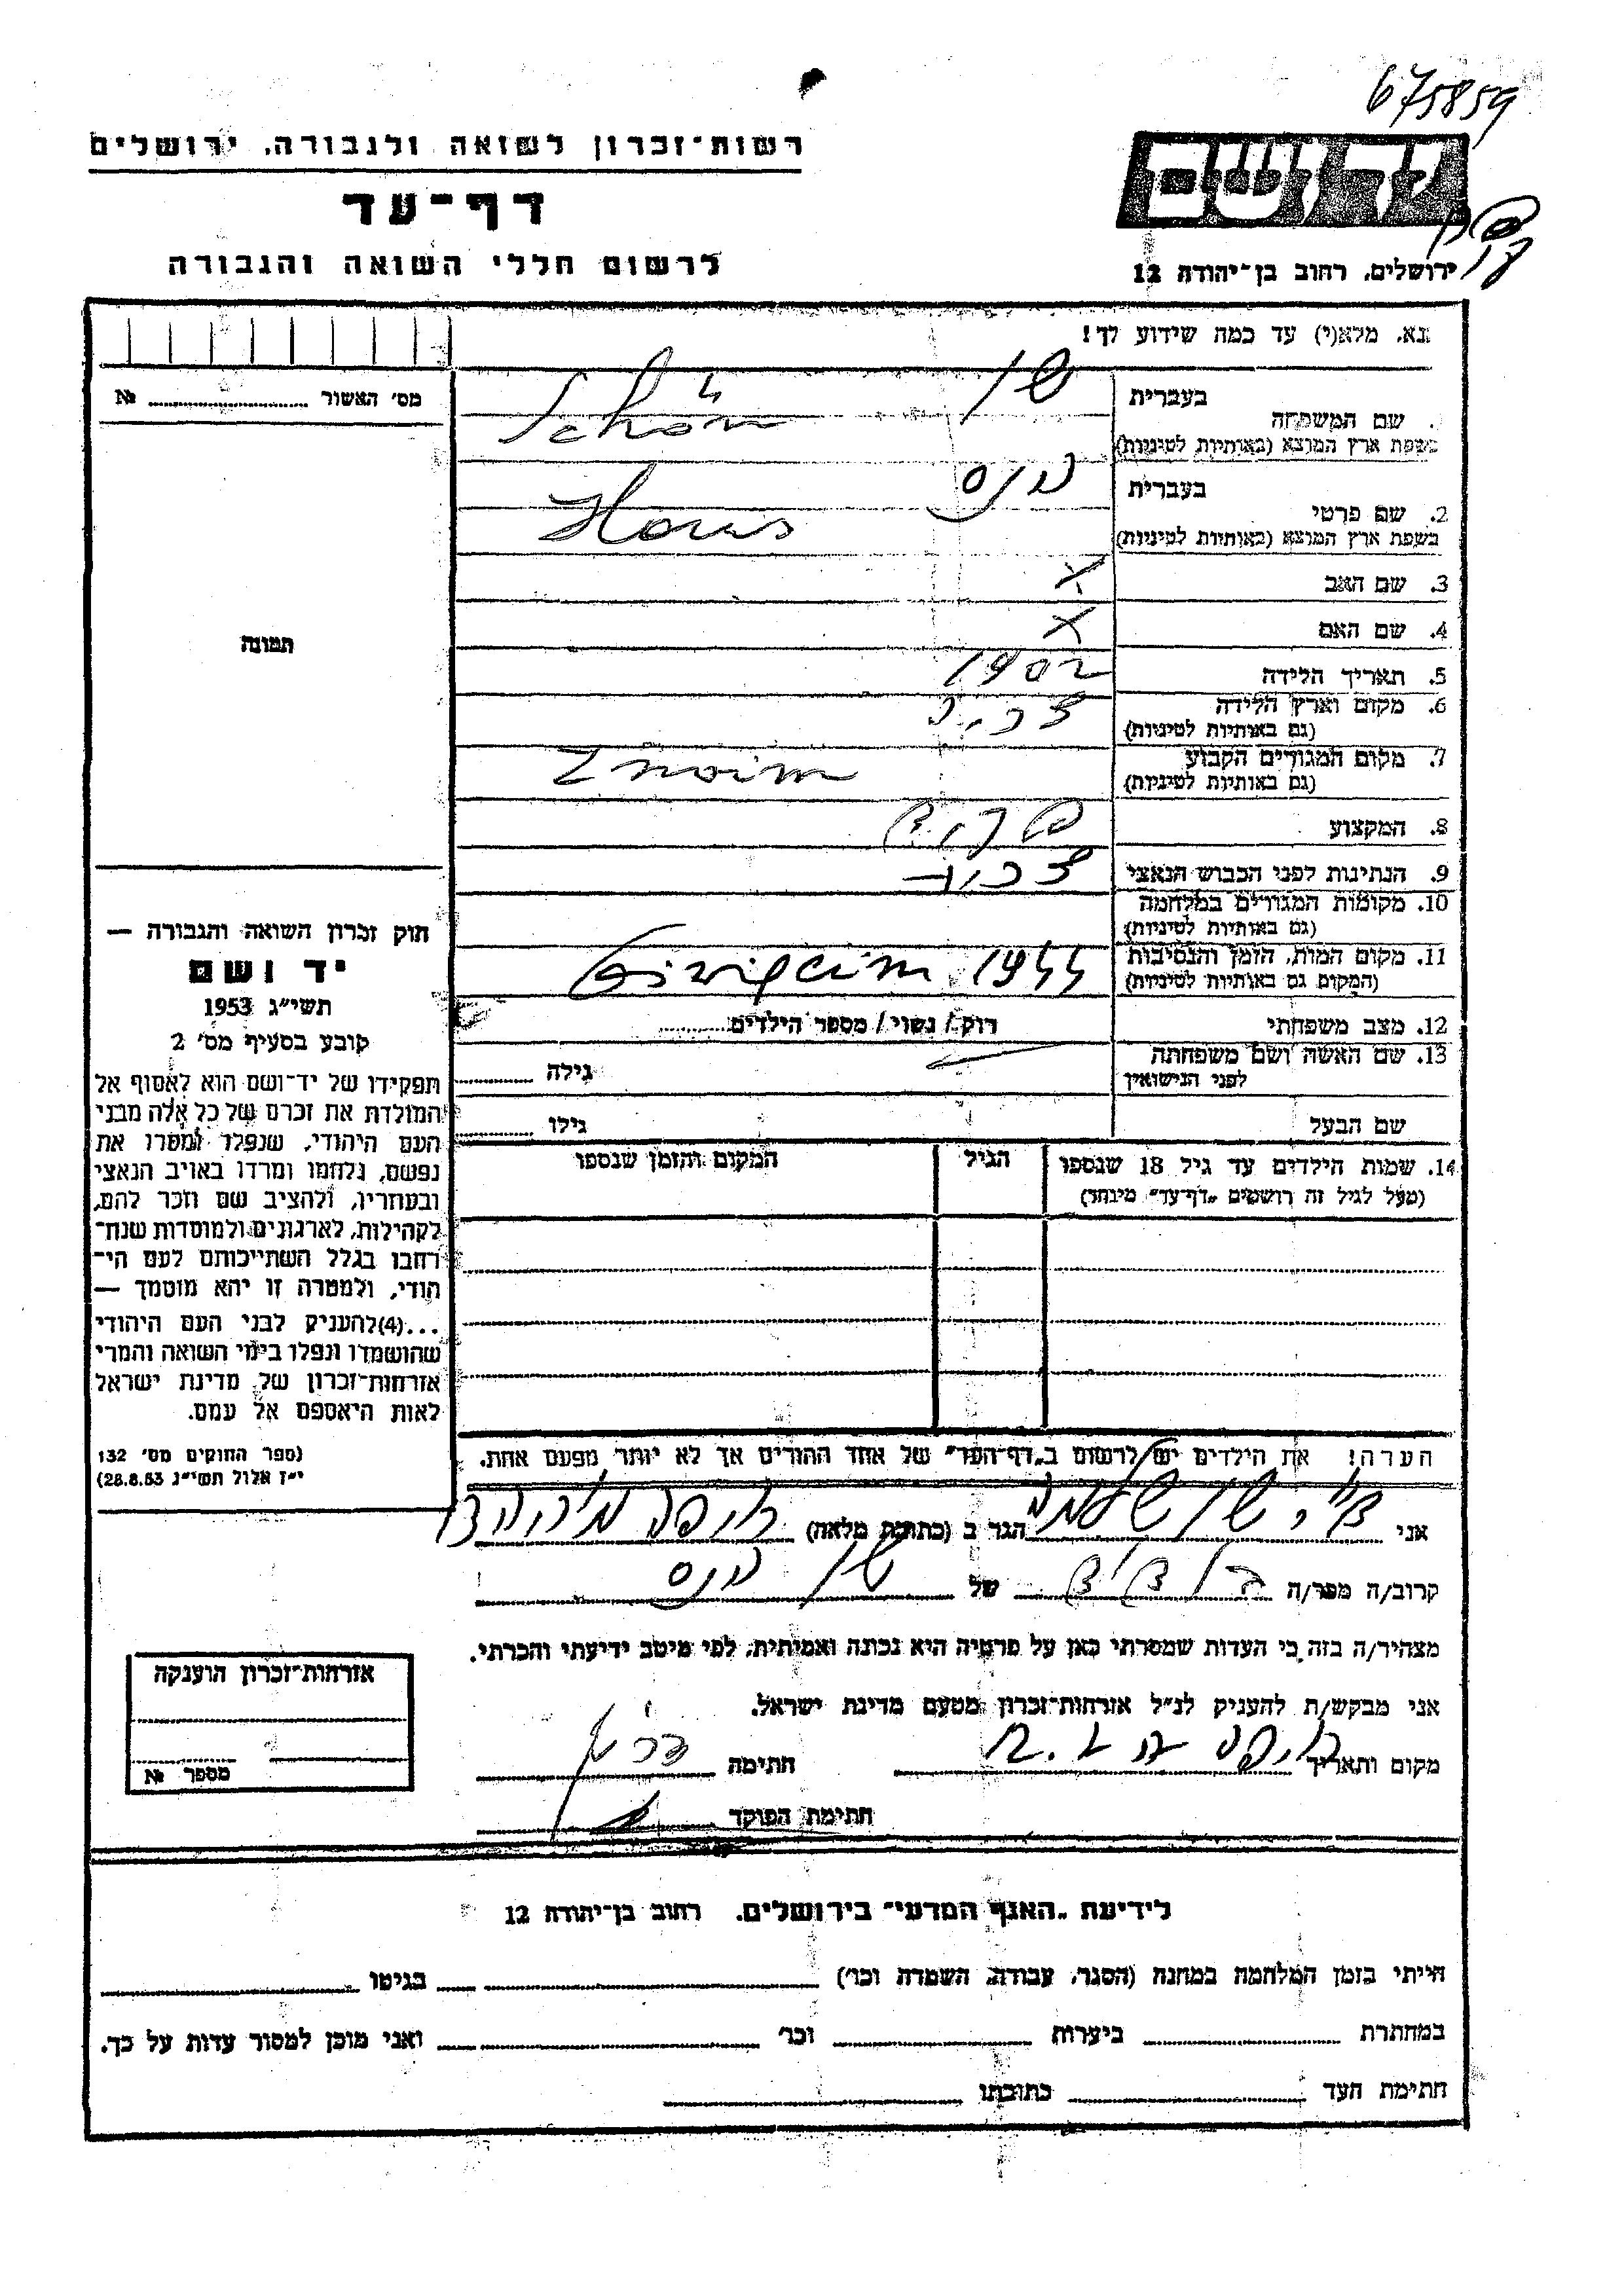 675859
רשות־זכרון לשואה ולגבורה, ירושלים
דף־עד
לרשום חללי השואה והגבורה
יד ושם
ירושלים, רחוב בן־יהודה 12
נא, מלא(י) עד כמה שידוע לך!
מס' האשור № 
תמונה
בעברית
שם המשפחה
בשפת ארץ המוצא (באותיות לטיניות)
Schön
בעברית
2. שם פרטי
בשפת ארץ המוצא (באותיות לטיניות)
הנס
3. שם האב X
4. שם האם X
5. תאריך הלידה 1902
6. מקום וארץ הלידה
(גם באותיות לטיניות)
7. מקום המגורים הקבוע
(גם באותיות לטיניות)
Znoim
8. המקצוע
9. הנתינות לפני הכבוש הנאצי
10. מקומות המגורים במלחמה
(גם באותיות לטיניות)
11. מקום המות, הזמן והנסיבות
(המקום גם באותיות לטיניות)
1944
12. מצב משפחתי רוק / נשוי / מספר הילדים
13. שם האשה ושם משפחתה
לפני הנישואין
גילה
שם הבעל גילו
14. שמות הילדים עד גיל 18 שנספו הגיל המקום והזמן שנספו
(מעל לגיל זה רושמים "דף־עד" מיוחד)
הערה! את הילדים יש לרשום ב"דף־העד" של אחד ההורים אך לא יותר מפעם אחת.
חוק זכרון השואה והגבורה —
יד ושם
תשי"ג 1953
קובע בסעיף מס' 2
תפקידו של יד־ושם הוא לאסוף אל
המולדת את זכרם של כל אלה מבני
העם היהודי, שנפלו ומסרו את
נפשם, נלחמו ומרדו באויב הנאצי
ובעוזריו, ולהציב שם וזכר להם,
לקהילות, לארגונים ולמוסדות שנח־
רחבו בגלל השתייכותם לעם הי־
הודי, ולמטרה זו יהא מוסמך —
...(4)להעניק לבני העם היהודי
שהושמדו ונפלו בימי השואה והמרי
אזרחות־זכרון של מדינת ישראל
לאות היאספם אל עמם.
(ספר החוקים מס' 132
י"ז אלול תשי"ג 28.8.53)
אני הגר ב (כתובת מלאה)
קרוב/ה מפר/ה של שן הנס
מצהיר/ה בזה כי העדות שמסרתי כאן על פרטיה היא נכונה ואמיתית, לפי מיטב ידיעתי והכרתי.
אני מבקש/ת להעניק לנ"ל אזרחות־זכרון מטעם מדינת ישראל.
מקום ותאריך חתימה
חתימת הפוקד
אזרחות־זכרון הוענקה
מספר №
לידיעת "האגף המדעי" בירושלים, רחוב בן־יהודה 12
הייתי בזמן המלחמה במחנה (הסגר, עבודה, השמדה וכו') בגיטו
במחתרת ביערות וכו' ואני מוכן למסור עדות על כך.
חתימת העד כתובתו